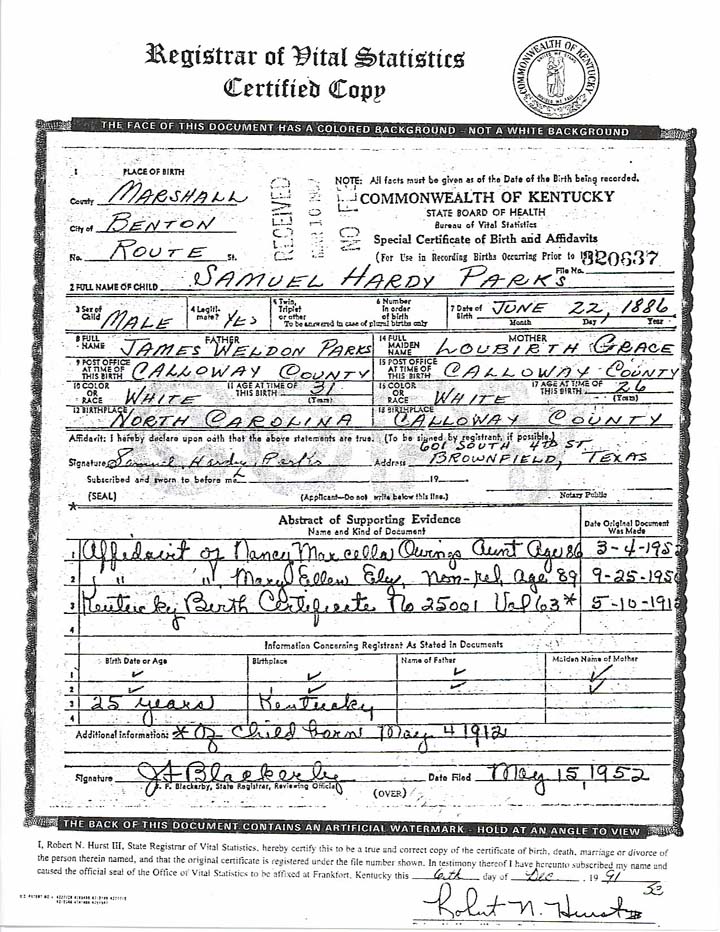 Registrar of Vital Statistics
Certified Copy
COMMONWEALTH OF KENTUCKY
THE FACE OF THIS DOCUMENT HAS A COLORED BACKGROUND - NOT A WHITE BACKGROUND
1 PLACE OF BIRTH
County MARSHALL
City of BENTON
No. ROUTE St.
RECEIVED
NOTE: All facts must be given as of the Date of the Birth being recorded.
COMMONWEALTH OF KENTUCKY
STATE BOARD OF HEALTH
Bureau of Vital Statistics
Special Certificate of Birth and Affidavits
(For Use in Recording Births Occurring Prior to
File No. 320637
2 FULL NAME OF CHILD SAMUEL HARDY PARKS
3 Sex of Child MALE 4 Legitimate? YES 5 Twin, Triplet or other 6 Number in order of birth 7 Date of Birth JUNE 22, 1886
To be answered in case of plural births only Month Day Year
FATHER MOTHER
8 FULL NAME JAMES WELDON PARKS 14 FULL MAIDEN NAME LOUBIRTH GRACE
9 POST OFFICE AT TIME OF THIS BIRTH CALLOWAY COUNTY 15 POST OFFICE AT TIME OF THIS BIRTH CALLOWAY COUNTY
10 COLOR OR RACE WHITE 11 AGE AT TIME OF THIS BIRTH 31 (Years) 16 COLOR OR RACE WHITE 17 AGE AT TIME OF THIS BIRTH 26 (Years)
12 BIRTHPLACE NORTH CAROLINA 18 BIRTHPLACE CALLOWAY COUNTY
Affidavit: I hereby declare upon oath that the above statements are true. (To be signed by registrant, if possible.)
601 SOUTH 4TH ST
Signature Samuel Hardy Parks Address BROWNFIELD, TEXAS
Subscribed and sworn to before me 19
(SEAL) (Applicant—Do not write below this line.) Notary Public
Abstract of Supporting Evidence
Name and Kind of Document
Date Original Document Was Made
1 Affidavit of Nancy Marcella Owings Aunt Age 86 3-4-195
2 " " Mary Ellen Ely, Non-rel, age 89 9-25-195
3 Kentucky Birth Certificate No 25001 Vol 63* 5-10-191
4
Information Concerning Registrant As Stated in Documents
Birth Date or Age Birthplace Name of Father Maiden Name of Mother
1 ✓ ✓ ✓ ✓
2 ✓ ✓ ✓ ✓
3 25 years Kentucky
4
Additional information: * Of Child born May 4 1912
Signature J F Blackerby Date Filed May 15, 1952
J. F. Blackerby, State Registrar, Reviewing Official
(OVER)
THE BACK OF THIS DOCUMENT CONTAINS AN ARTIFICIAL WATERMARK - HOLD AT AN ANGLE TO VIEW
I, Robert N. Hurst III, State Registrar of Vital Statistics, hereby certify this to be a true and correct copy of the certificate of birth, death, marriage or divorce of
the person therein named, and that the original certificate is registered under the file number shown. In testimony thereof I have hereunto subscribed my name and
caused the official seal of the Office of Vital Statistics to be affixed at Frankfort, Kentucky this 6th day of Dec. 19 91
53
Robert N. Hurst III